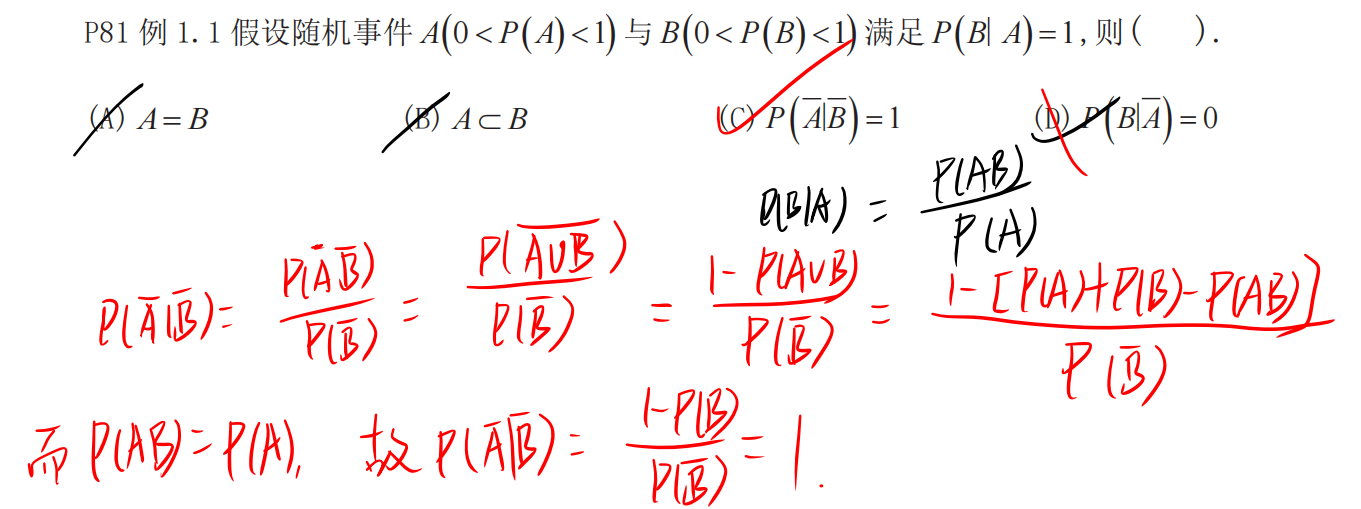 P81 例 1.1 假设随机事件 A(0<P(A)<1) 与 B(0<P(B)<1) 满足 P(B| A)=1,则( ).
(A) A=B (B) A⊂B (C) P(A̅|B̅)=1 (D) P(B|A̅)=0
P(B|A) = P(AB)/P(A)
P(A̅|B̅) = P(A̅B̅)/P(B̅) = P(\overline{A∪B})/P(B̅) = 1-P(A∪B)/P(B̅) = 1-[P(A)+P(B)-P(AB)]/P(B̅)
而 P(AB)=P(A), 故 P(A̅|B̅) = 1-P(B)/P(B̅) = 1.